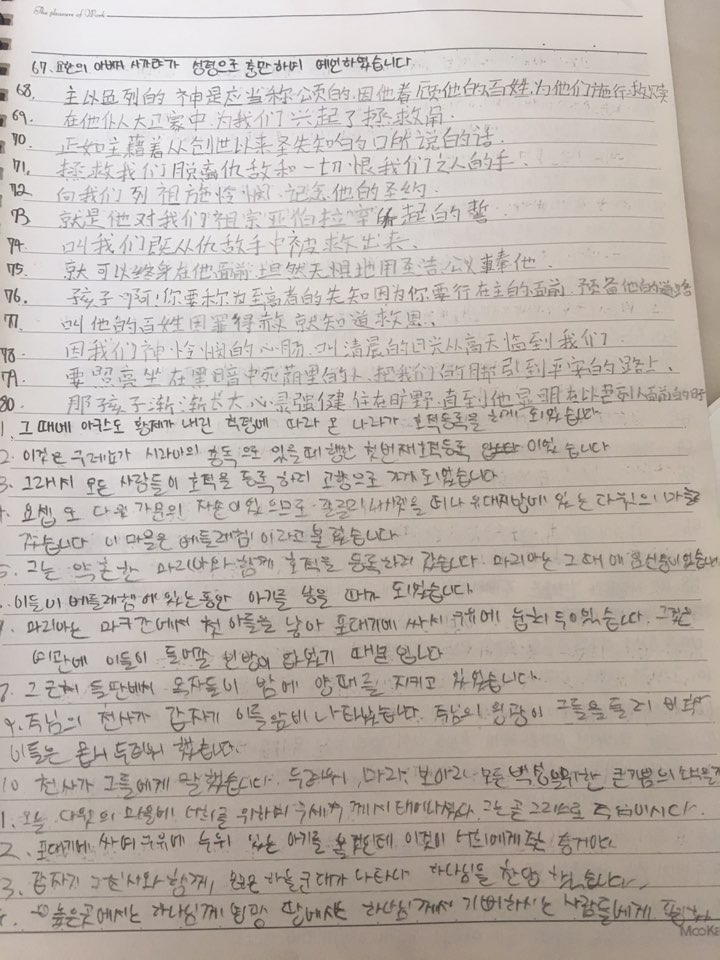 The pleasure of Work
67. 요한의 아버지 사가랴가 성령으로 충만하여 예언하였습니다
68. 主以色列的神是应当称颂的,因他眷顾他的百姓,为他们施行救赎
69. 在他仆人大卫家中,为我们兴起了拯救角
70. 正如主藉着从创世以来圣先知的口所说的话.
71. 拯救我们脱离仇敌和一切恨我们之人的手.
72. 向我们列祖施怜悯.记念他的圣约.
73. 就是他对我们祖宗亚伯拉罕所起的誓.
74. 叫我们既从仇敌手中被救出来.
75. 就可以终身在他面前,坦然无惧地用圣洁.公义事奉他.
76. 孩子啊,你要称为至高者的先知因为你要行在主的面前,预备他的道路
77. 叫他的百姓因罪得赦就知道救恩.
78. 因我们神怜悯的心肠.叫清晨的日光从高天临到我们
79. 要照亮坐在黑暗中死荫里的人.把我们的脚引到平安的路上.
80. 那孩子渐渐长大.心灵强健.住在旷野.直到他显明在以色列人面前的日子
1. 그 때에 아구스도 황제가 내린 칙령에 따라 온 나라가 호적등록을 하게 되었습니다
2. 이것은 구레뇨가 시리아의 총독으로 있을때 행한 첫번째 호적등록 이었습니다
3. 그래서 모든 사람들이 호적을 등록하러 고향으로 가게 되었습니다
요셉도 다윗 가문의 자손이었으므로 갈릴리 나사렛을 떠나 유대지방에 있는 다윗의 마을
갔습니다 이 마을은 베들레헴이라고 불렀습니다
그는 약혼한 마리아와 함께 호적을 등록하러 갔습니다. 마리아는 그 때에 임신중이었습니다
이들이 베들레헴에 있는동안 아기를 낳을 때가 되었습니다
마리아는 마구간에서 첫 아들을 낳아 포대기에 싸서 구유에 눕혀 두었습니다. 그것은
여관에 이들이 들어갈 빈방이 없었기 때문입니다
그 근처 들판에서 목자들이 밤에 양떼를 지키고 있었습니다.
9. 주님의 천사가 갑자기 이들앞에 나타났습니다. 주님의 영광이 그들을 둘러 비추
이들은 몹시 두려워 했습니다.
10 천사가 그들에게 말했습니다. 두려워 마라. 보아라 모든 백성을위한 큰기쁨의 소식을
1. 오늘 다윗의 마을에 너희를 위하여 구세주께서 태어나셨다. 그는곧 그리스도 주님이시다.
2. 포대기에 싸여 구유에 누워 있는 아기를 볼것인데 이것이 너희에게 증거이다.
3. 갑자기 그 천사와 함께, 많은 하늘 군대가 나타나 하나님을 찬양했습니다.
높은곳에서는 하나님께 영광 땅에서는 하나님께서 기뻐하시는 사람들에게